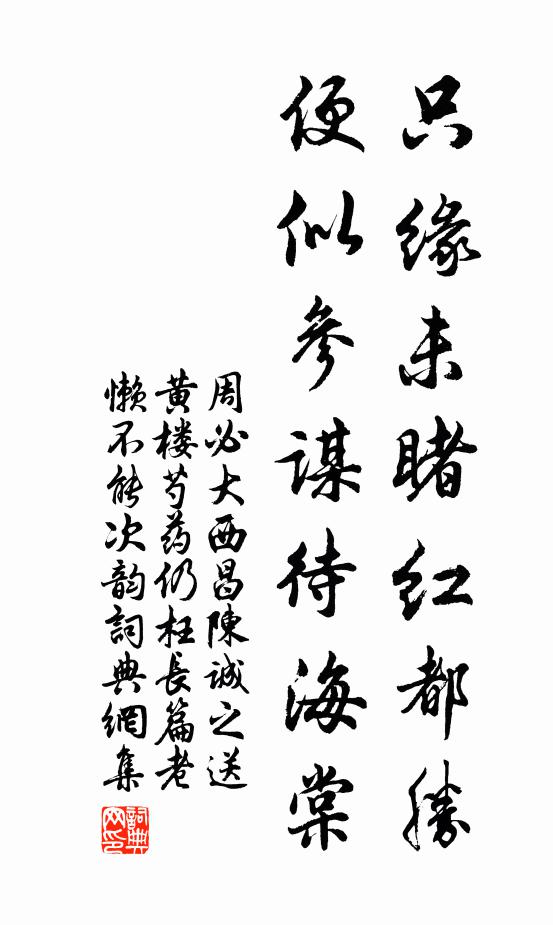 只缘未睹红都胜
便似参谋待海棠
周必大西昌陳诚之送
黄楼芍药仍枉長篇老
懒不能次韵詞典網集
詞典
网印